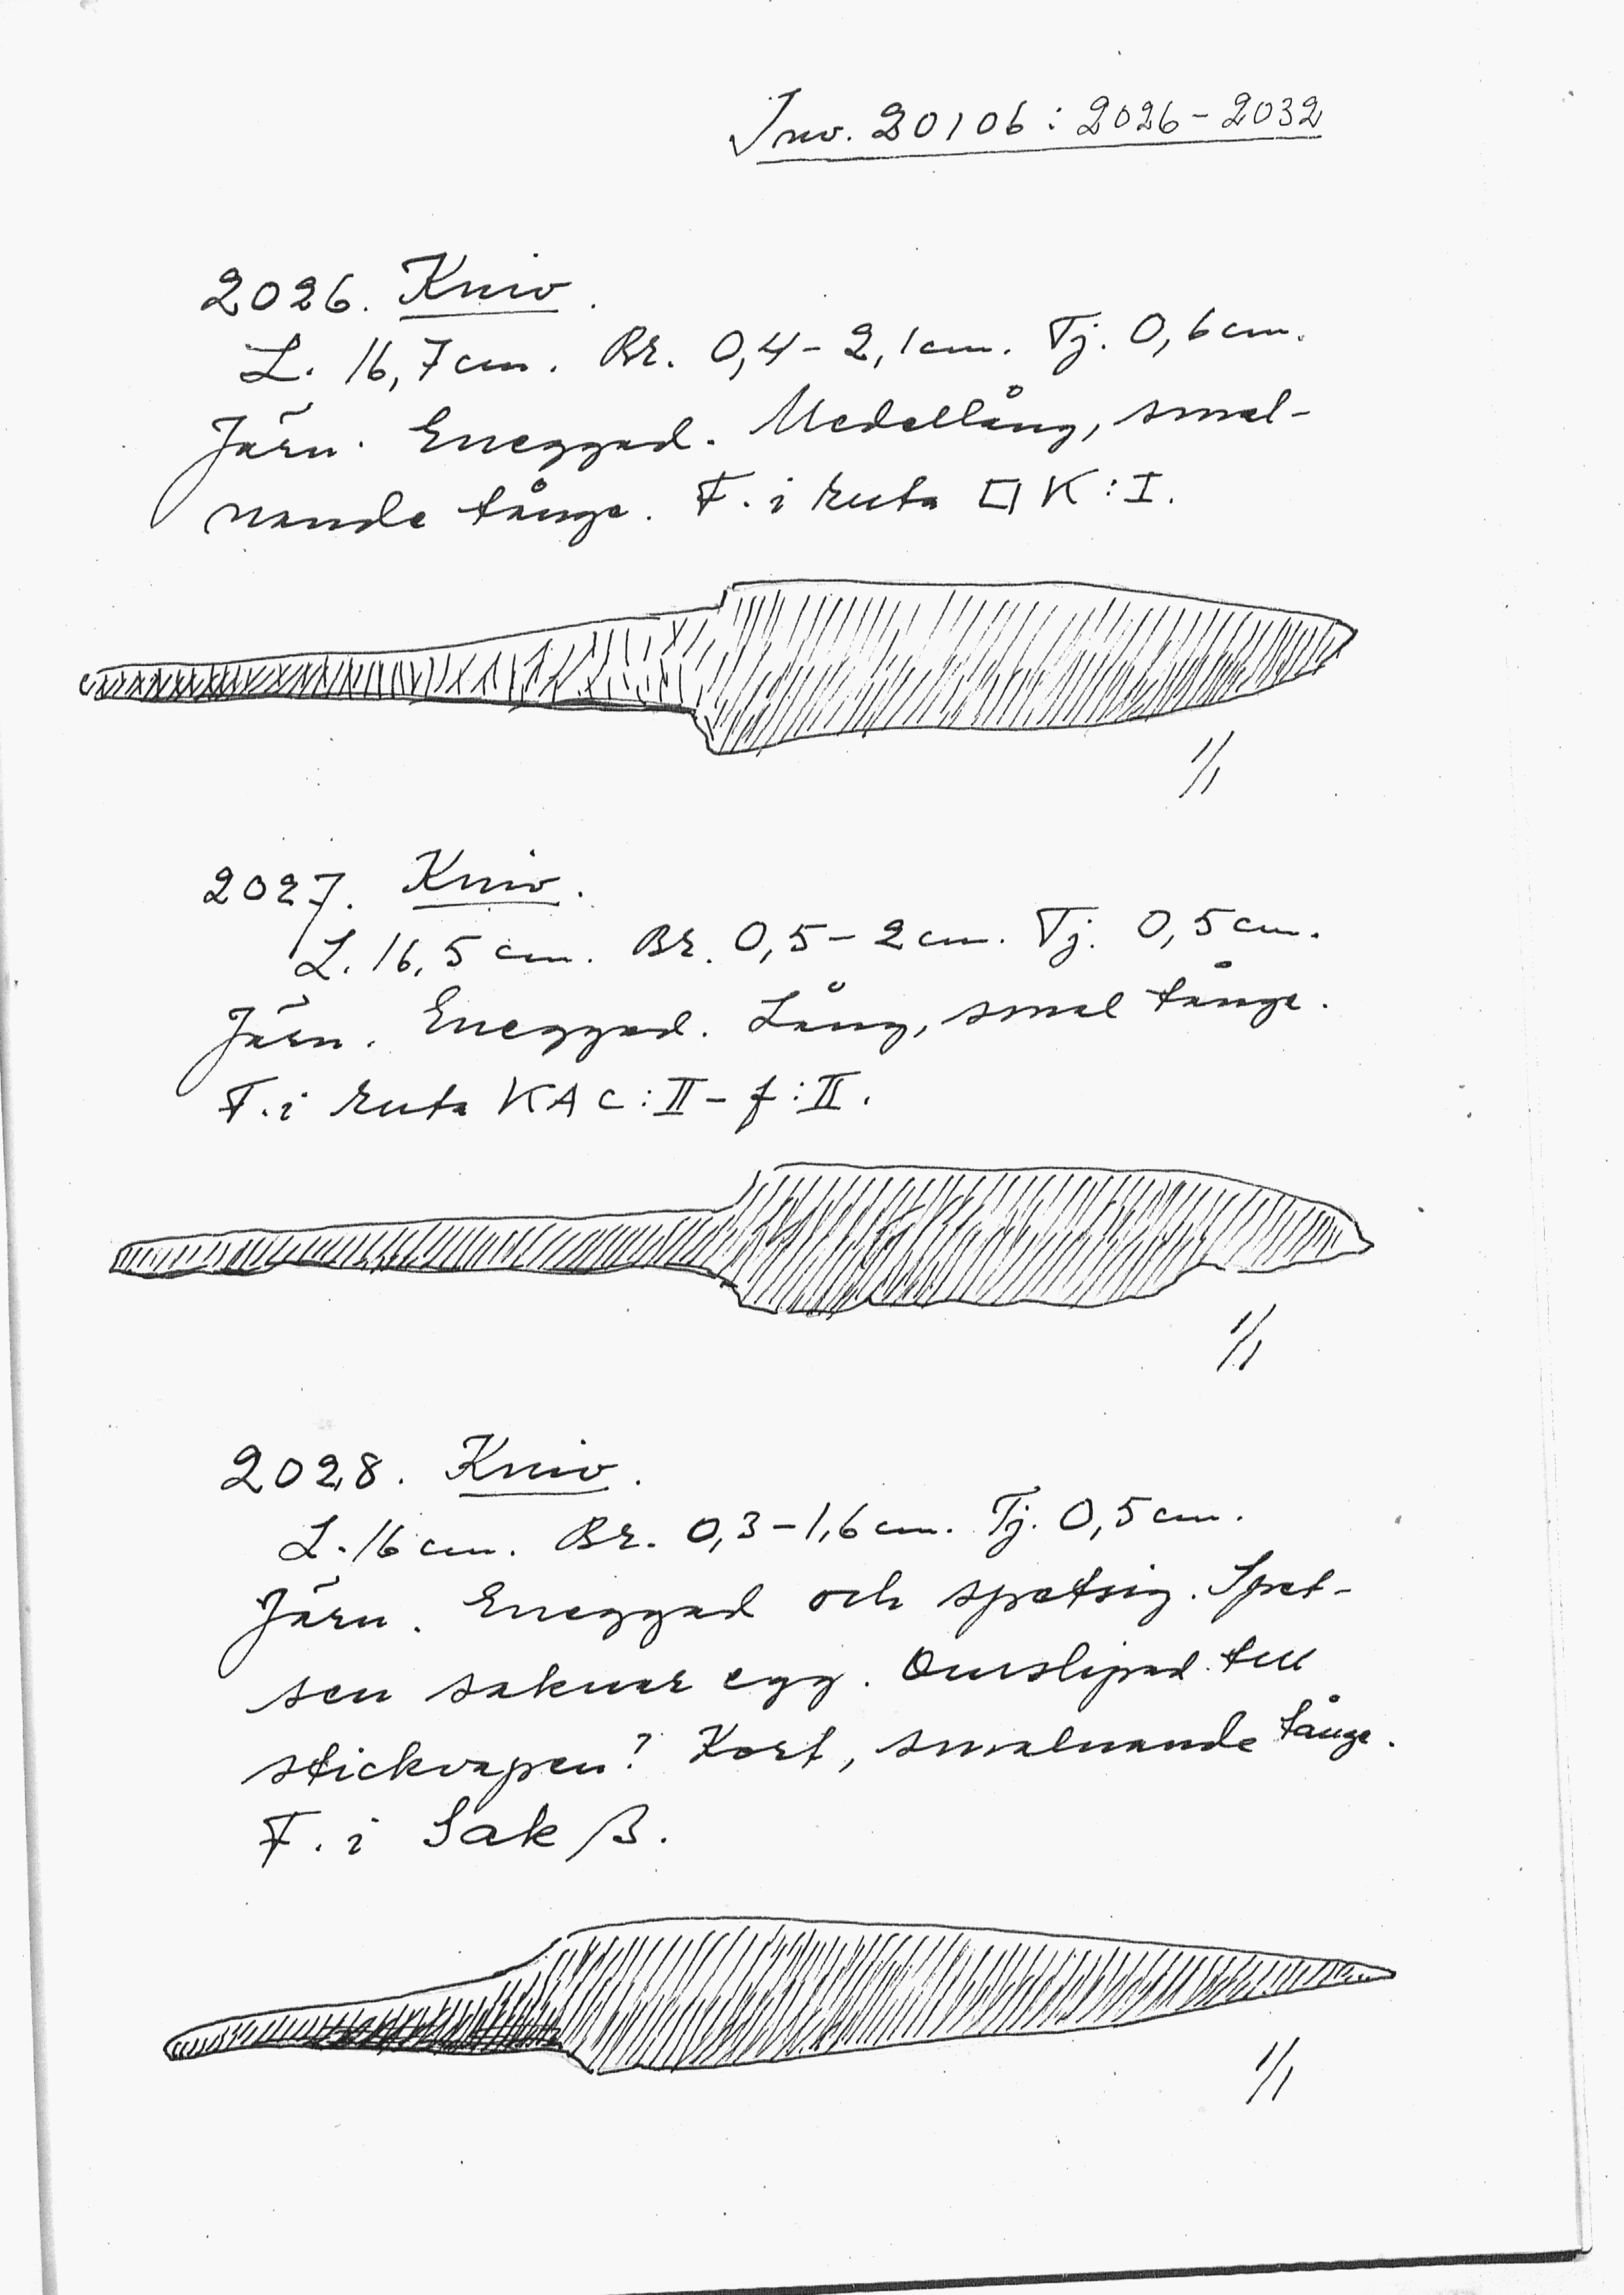 Inv. 20106 : 2026-2032
2026. Kniv.
L. 16,7 cm. Br. 0,4-2,1 cm. Tj. 0,6 cm.
Järn. Eneggad. Medellång, smal-
nande tånge. F. i ruta □ K : I.
1/1
2027. Kniv.
L. 16,5 cm. Br. 0,5-2 cm. Tj. 0,5 cm.
Järn. Eneggad. Lång, smal tånge.
F. i ruta KA c : II - f : II.
1/1
2028. Kniv.
L. 16 cm. Br. 0,3-1,6 cm. Tj. 0,5 cm.
Järn. Eneggad och spetsig. Spet-
sen saknar egg. Omslipad till
stickvapen? Kort, smalnande tånge.
F. i Sak β.
1/1